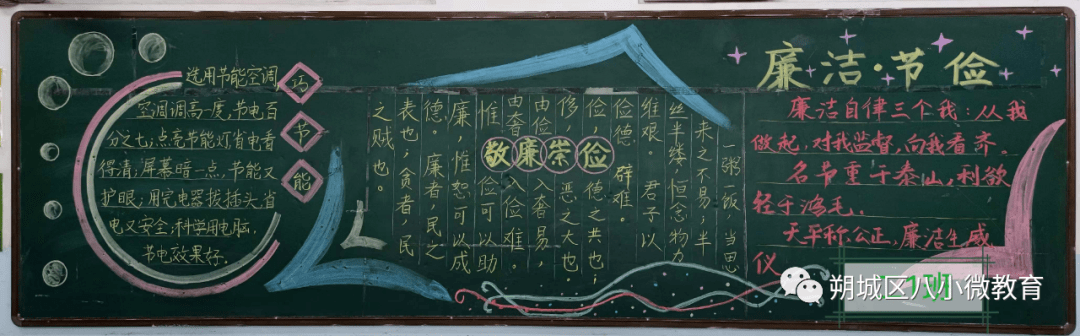 选用节能空调
空调调高一度,节电百
分之七;点亮节能灯,省电看
得清;屏幕暗一点,节能又
护眼;用完电器拔插头,省
电又安全;科学用电脑,
节电效果好。
巧
节
能
敬廉崇俭
一粥一饭,当思
来之不易;半
丝半缕,恒念物力
维艰。君子以
俭德辟难。
俭,德之共也;
侈,恶之大也。
由俭入奢易,
由奢入俭难。
惟俭可以助
廉,惟恕可以成
德。廉者,民之
表也;贪者,民
之贼也。
廉洁·节俭
廉洁自律三个我:从我
做起,对我监督,向我看齐。
名节重于泰山,利欲
轻于鸿毛。
天平称公正,廉洁生威
仪
朔城区八小微教育